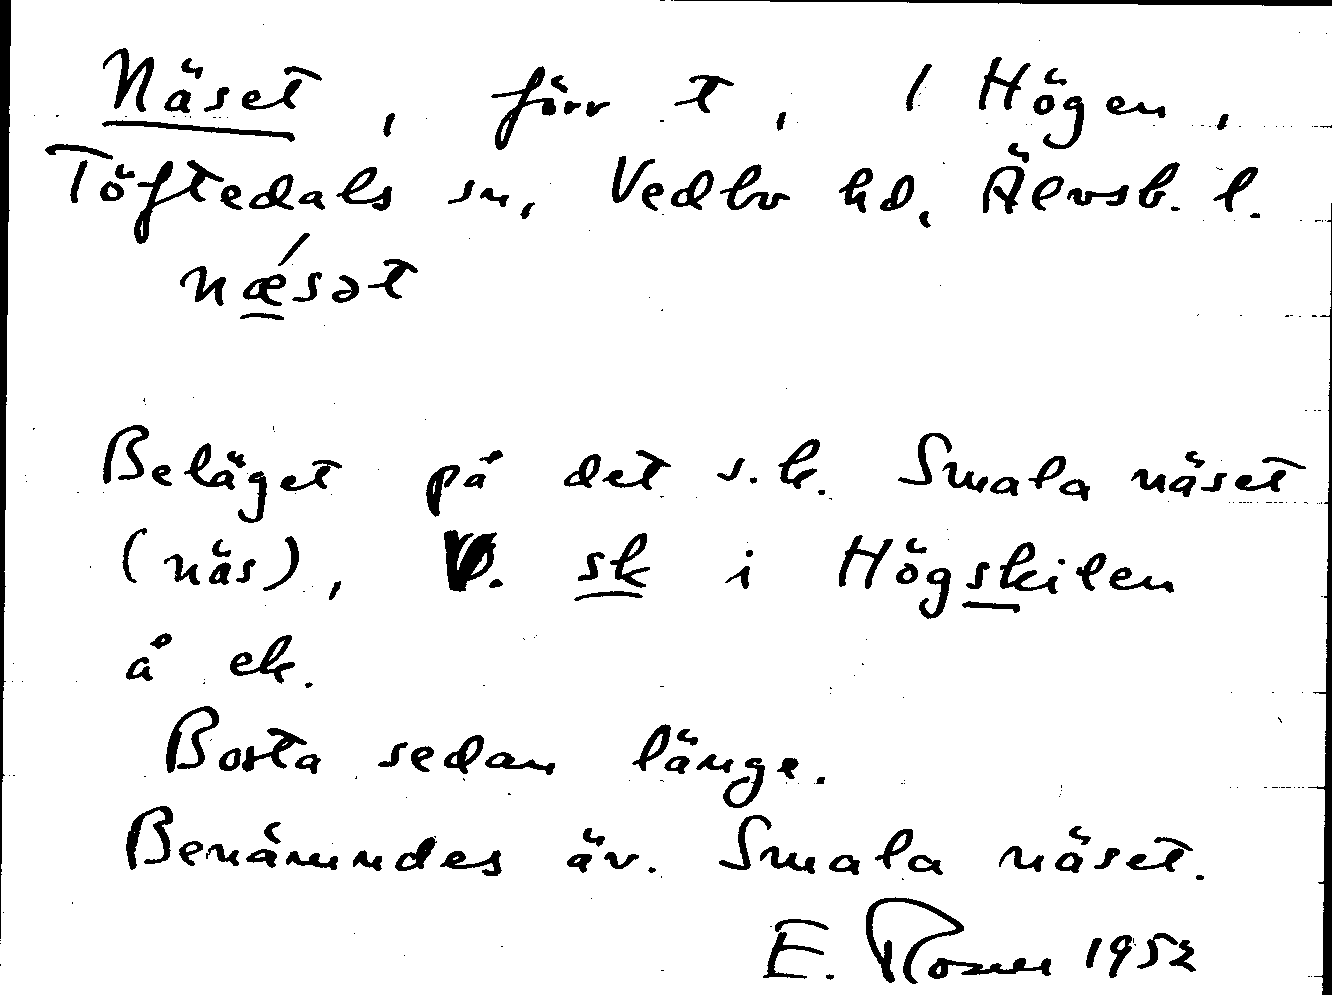 Näset, förr t, 1 Högen,
Töftedals sn, Vedbo hd, Älvsb. l.
nǽsət
Beläget på det s.k. Smala näset
(näs), V. sk i Högskilen
å ek.
Borta sedan länge.
Benämndes äv. Smala näset.
E. 1952